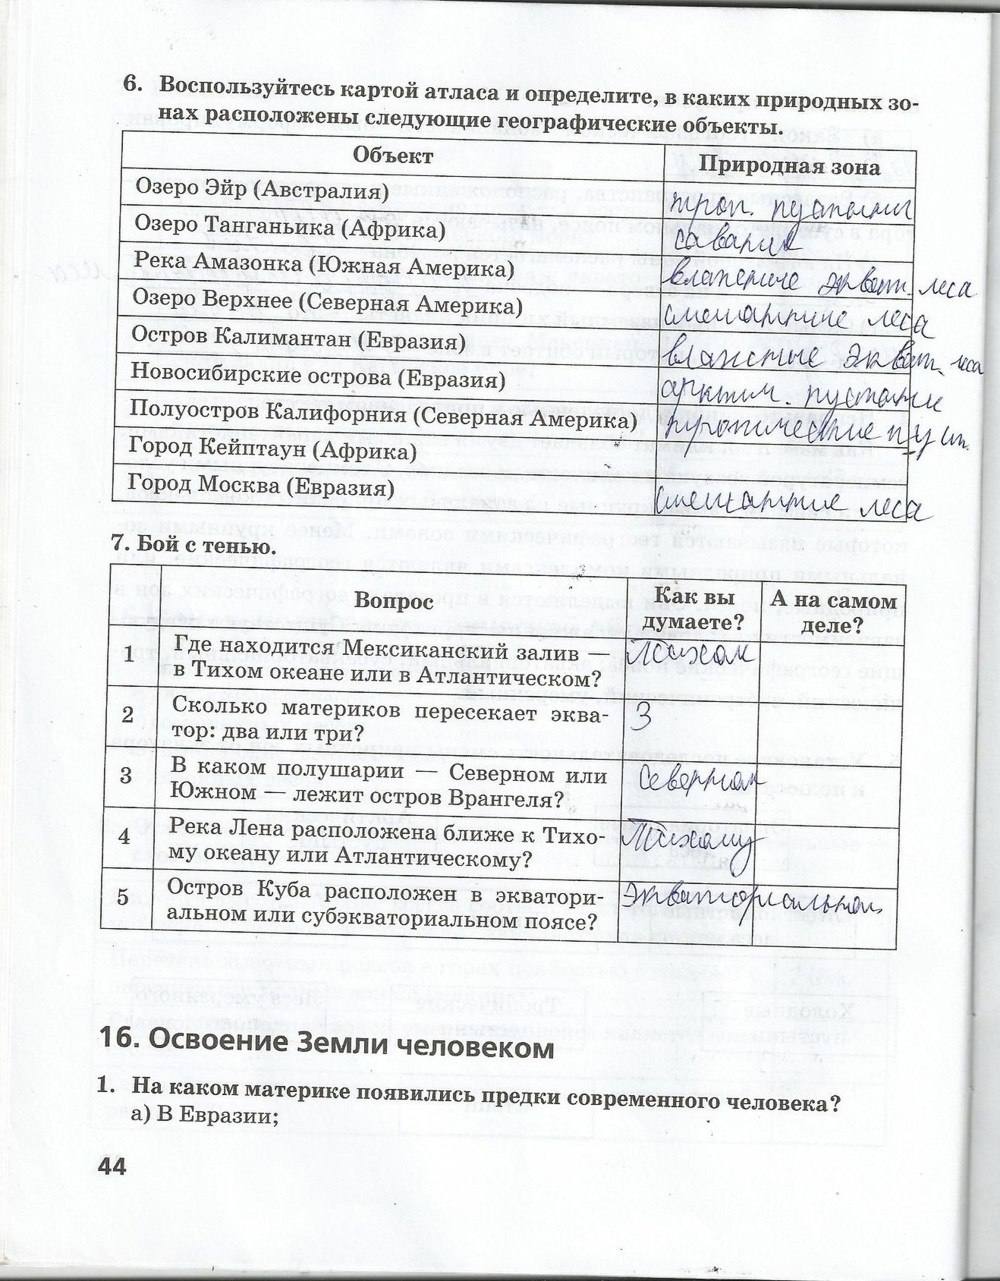 6. Воспользуйтесь картой атласа и определите, в каких природных зо-
нах расположены следующие географические объекты.
Объект Природная зона
Озеро Эйр (Австралия) троп. пустыни
Озеро Танганьика (Африка) саванн
Река Амазонка (Южная Америка) влажные экват. леса
Озеро Верхнее (Северная Америка) смешанные леса
Остров Калимантан (Евразия) влажные экват. леса
Новосибирские острова (Евразия) арктич. пустыни
Полуостров Калифорния (Северная Америка) тропические пуст.
Город Кейптаун (Африка)
Город Москва (Евразия) смешанные леса
7. Бой с тенью.
Вопрос Как вы думаете? А на самом деле?
1 Где находится Мексиканский залив — Тихом
в Тихом океане или в Атлантическом?
2 Сколько материков пересекает эква- 3
тор: два или три?
3 В каком полушарии — Северном или Северном
Южном — лежит остров Врангеля?
4 Река Лена расположена ближе к Тихо- Тихому
му океану или Атлантическому?
5 Остров Куба расположен в эквато­ри- экваториальном
альном или субэкваториальном поясе?
16. Освоение Земли человеком
1. На каком материке появились предки современного человека?
а) В Евразии;
44